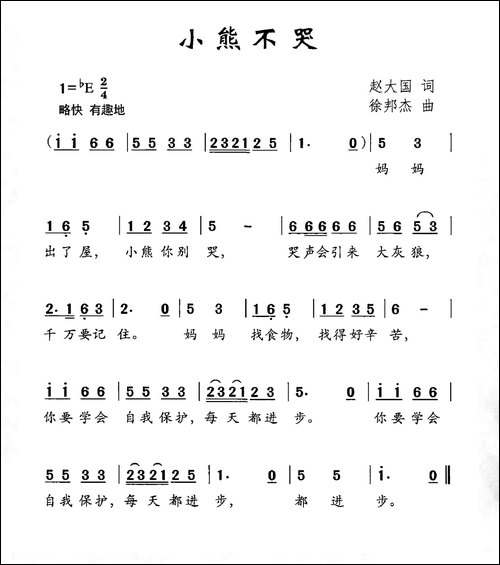 小熊不哭
1=♭E 2/4
赵大国 词
略快 有趣地
徐邦杰 曲
(i i 6 6 | 5 5 3 3 | 2 3 2 1 2 5 | 1. 0) | 5 3 |
妈 妈
1 6 5 | 1 2 3 4 | 5 - | 6 6 6 6 6 6 | 5 6 5 3 |
出了屋, 小熊你别 哭, 哭声会引来 大灰狼,
2. 1 6 3 | 2. 0 | 5 5 | 1 6 5 | 1 2 3 5 | 6 - |
千万要记 住。 妈 妈 找食物, 找得好辛 苦,
i i 6 6 | 5 5 3 3 | 2 3 2 1 2 2 3 | 5. 0 | i i 6 6 |
你要学会 自我保护, 每天都进 步。 你要学会
5 5 3 3 | 2 3 2 1 2 2 5 | 1. 0 | 5 5 | 1. 0 ‖
自我保护, 每天都进 步, 都 进 步。